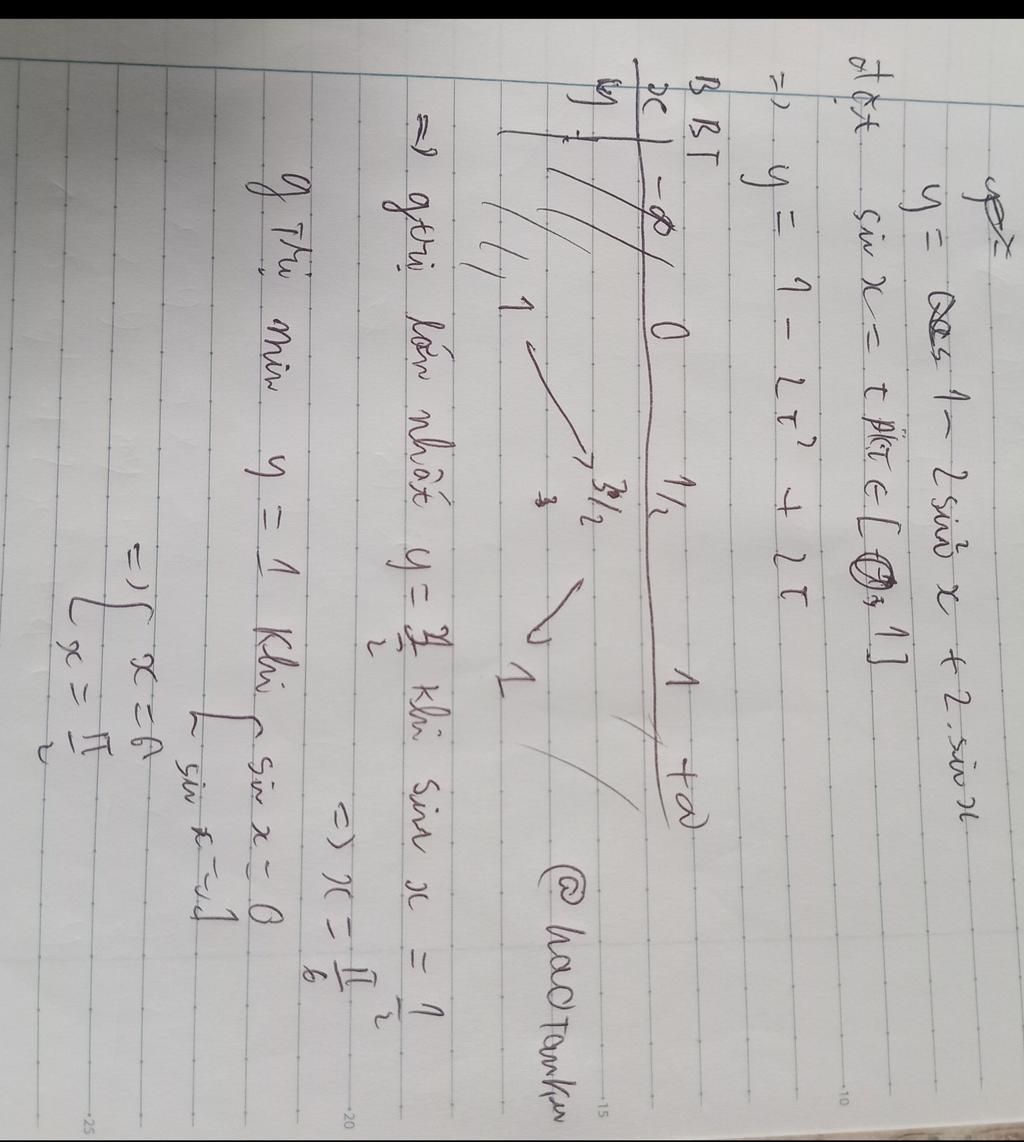 y = 1 - 2 sin² x + 2. sin x
đặt sin x = t ∈ [0; 1]
=> y = 1 - 2t² + 2t
BBT
x -∞ 0 1/2 1 +∞
y 1 3/2 1
@haotamku
=> gtrị lớn nhất y = 3/2 khi sin x = 1/2
=> x = π/6
g trị min y = 1 khi [ sin x = 0
[ sin x = 1
=> [ x = 0
[ x = π/2
-10
-15
-20
-25